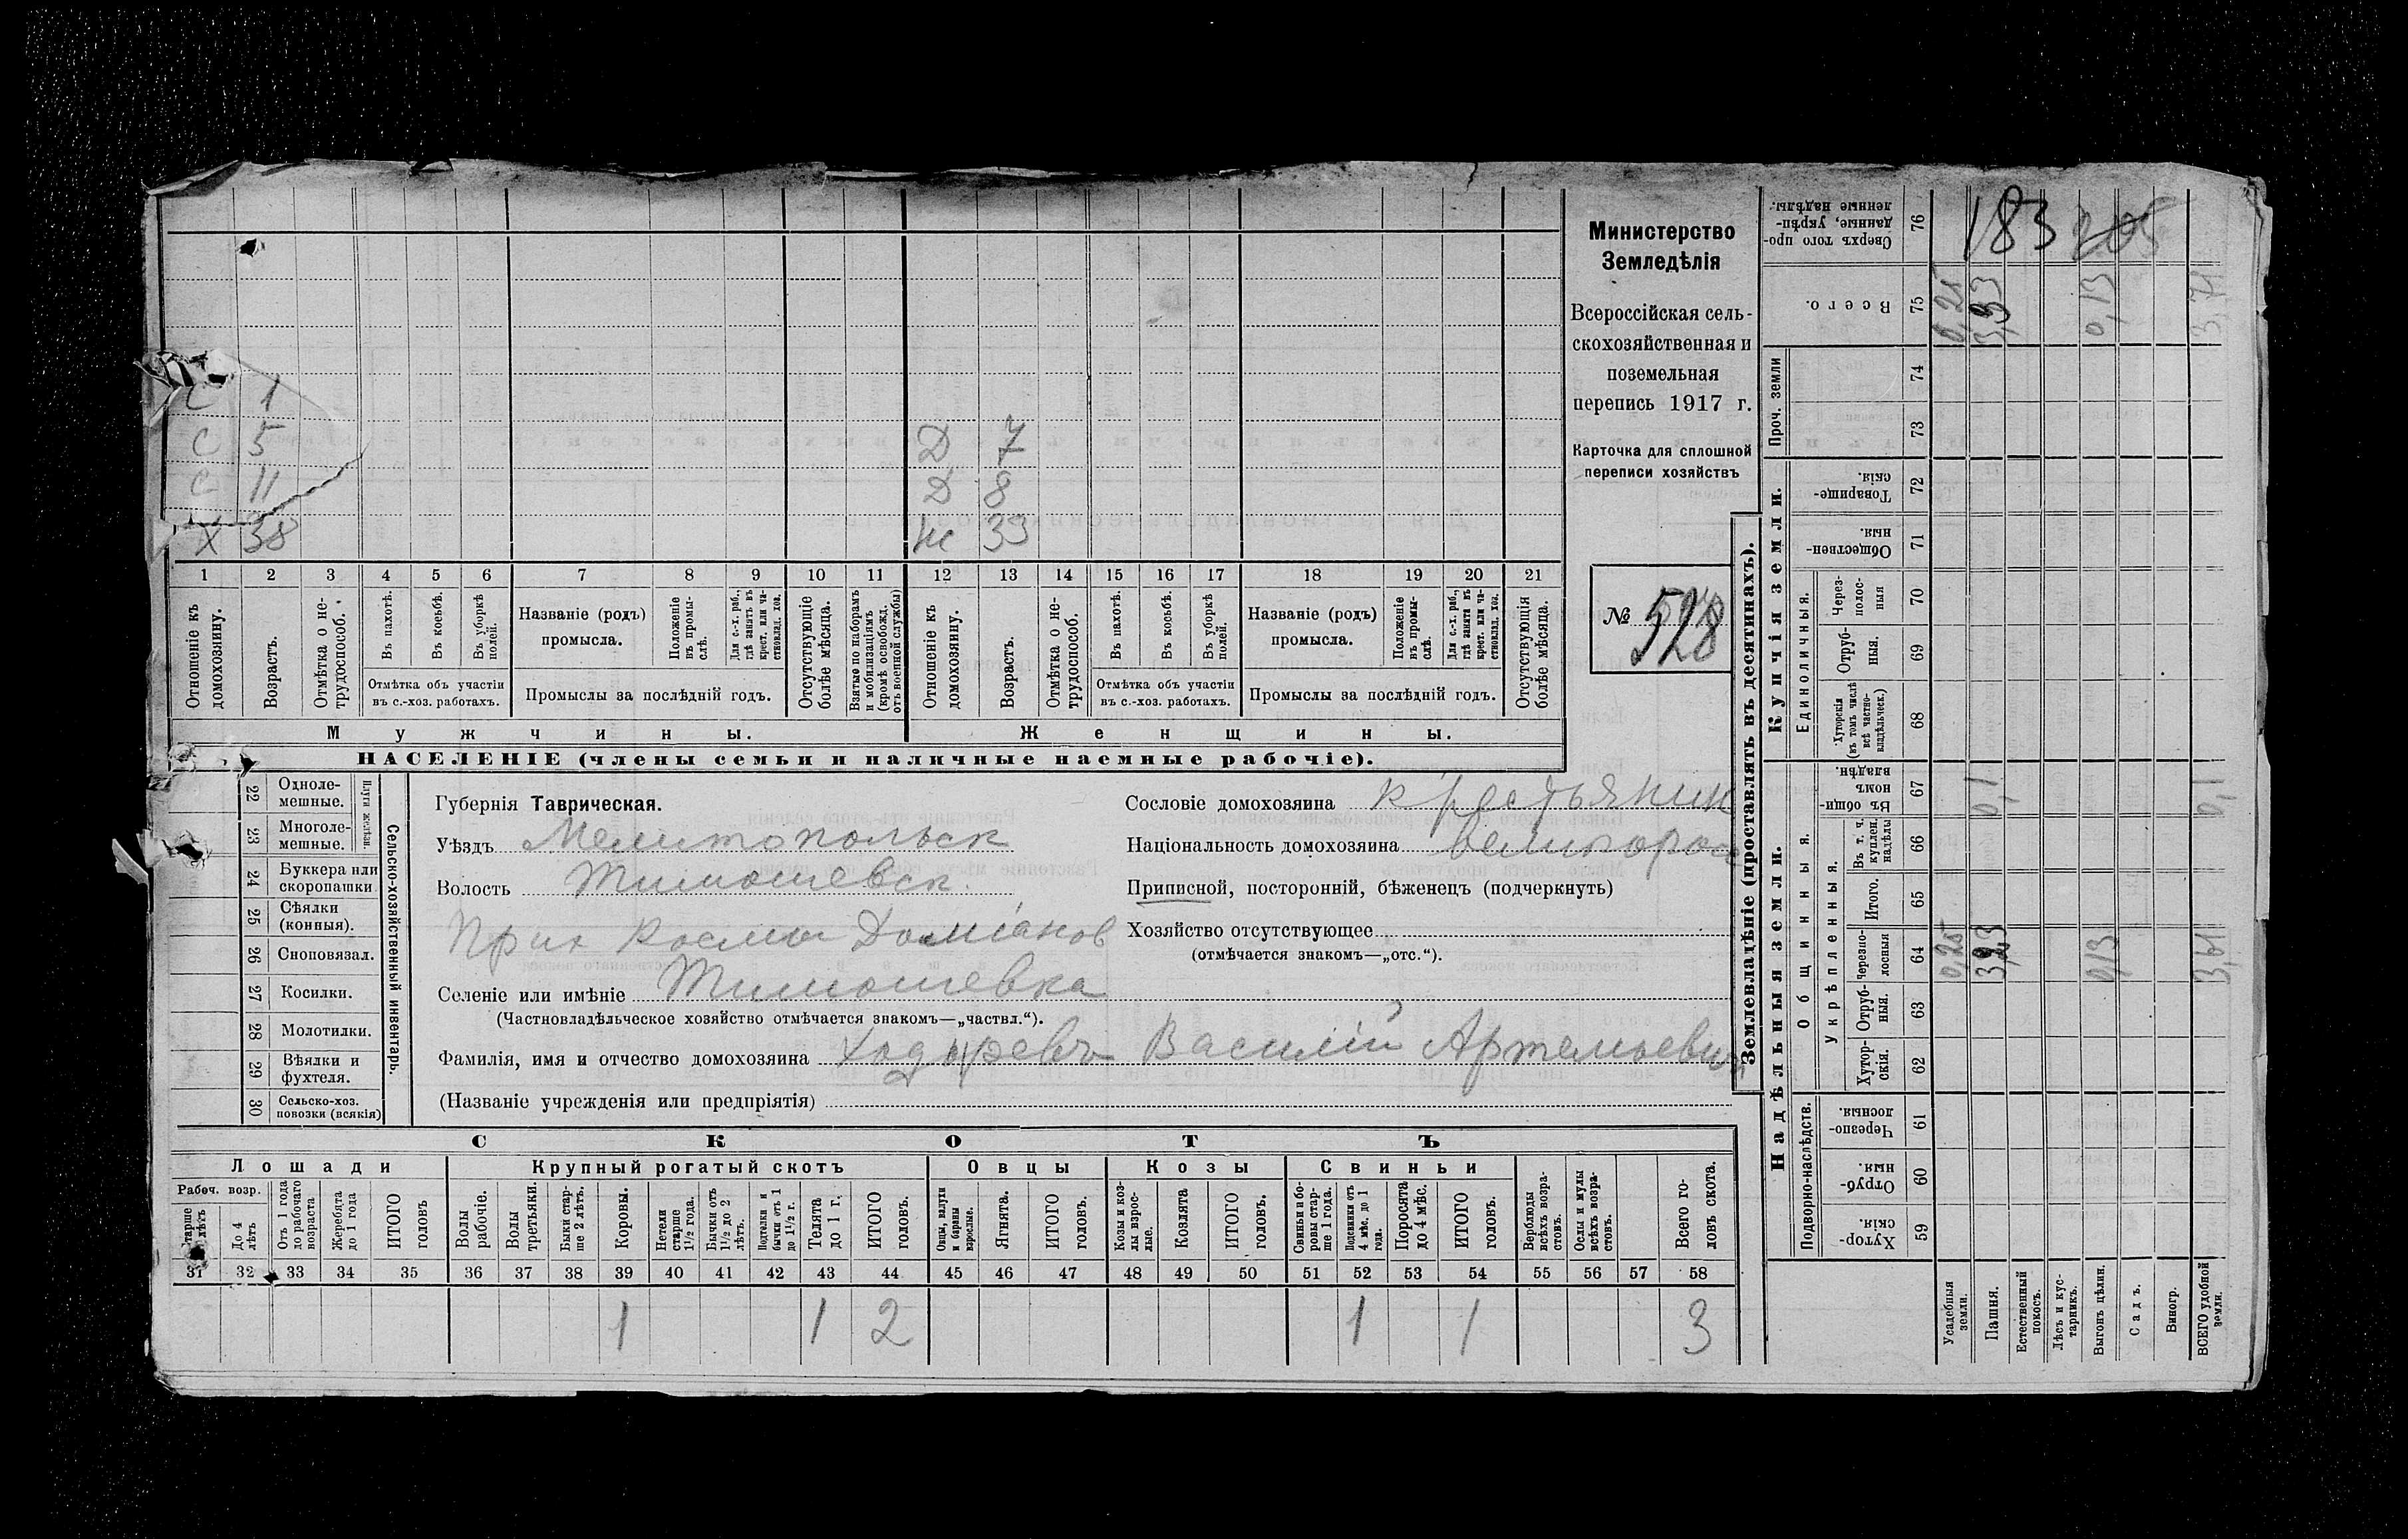 С 1
С 5
Д 7
С 11
Д 8
Х 38
Ж 33
1 2 3 4 5 6 7 8 9 10 11 12 13 14 15 16 17 18 19 20 21
Отношеніе къ домохозяину.
Возрастъ.
Отмѣтка о нетрудоспособ.
Въ пахотѣ.
Въ косьбѣ.
Въ уборкѣ полей.
Отмѣтка объ участіи
въ с.-хоз. работахъ.
Названіе (родъ)
промысла.
Положеніе въ промыслѣ.
Для с.-х. раб., гдѣ занятъ въ крест. или частновлад. хоз.
Промыслы за послѣдній годъ.
Отсутствующіе болѣе мѣсяца.
Взятые по наборамъ и мобилизаціямъ (кромѣ освобожд. отъ военной службы)
Отношеніе къ домохозяину.
Возрастъ.
Отмѣтка о нетрудоспособ.
Въ пахотѣ.
Въ косьбѣ.
Въ уборкѣ полей.
Отмѣтка объ участіи
въ с.-хоз. работахъ.
Названіе (родъ)
промысла.
Положеніе въ промыслѣ.
Для с.-х. раб., гдѣ занятъ въ крест. или частновлад. хоз.
Промыслы за послѣдній годъ.
Отсутствующія болѣе мѣсяца.
Мужчины.
Женщины.
НАСЕЛЕНІЕ (члены семьи и наличные наемные рабочіе).
Министерство
Земледѣлія
Всероссійская сель-
скохозяйственная и
поземельная
перепись 1917 г.
Карточка для сплошной
переписи хозяйствъ
№ 528
22 Одноле-
мешные.
23 Многоле-
мешные.
Плуги желѣзн.
24 Буккера или
скоропашки
25 Сѣялки
(конныя).
26 Сноповязал.
27 Косилки.
28 Молотилки.
29 Вѣялки и
фухтеля.
30 Сельско-хоз.
повозки (всякія)
Сельско-хозяйственный инвентарь.
Губернія Таврическая.
Уѣздъ Мелитопольск
Волость Тимошевск.
Прих Космо Даміанов
Селеніе или имѣніе Тимошевка
(Частновладѣльческое хозяйство отмѣчается знакомъ—„частвл.“).
Сословіе домохозяина крестьянин
Національность домохозяина великорос
Приписной, посторонній, бѣженец (подчеркнуть)
Хозяйство отсутствующее
(отмѣчается знакомъ—„отс.“).
Фамилія, имя и отчество домохозяина Василій Артемьевич
(Названіе учрежденія или предпріятія)
СКОТЪ
Лошади
Крупный рогатый скотъ
Овцы
Козы
Свиньи
Рабоч. возр.
Старше лѣтъ
До 4 лѣтъ
Отъ 1 года до рабочаго возраста
Жеребята до 1 года
ИТОГО головъ
Волы рабочіе.
Волы третьяки.
Быки старше 2 лѣтъ.
Коровы.
Нетели старше 1½ года.
Бычки отъ 1½ до 2 лѣтъ.
Подтелки и бычки отъ 1 до 1½ г.
Телята до 1 г.
ИТОГО головъ.
Овцы, валухи и бараны взрослые.
Ягнята.
ИТОГО головъ.
Козы и козлы взрослые.
Козлята
ИТОГО головъ.
Свиньи и боровы старше 1 года.
Подсвинки отъ 4 мѣс. до 1 года.
Поросята до 4 мѣс.
ИТОГО головъ.
Верблюды всѣхъ возрастовъ.
Ослы и мулы всѣхъ возрастовъ.
Всего головъ скота.
31 32 33 34 35 36 37 38 39 40 41 42 43 44 45 46 47 48 49 50 51 52 53 54 55 56 57 58
1 1 2 1 1 3
Землевладѣніе (проставлять въ десятинахъ).
Надѣльныя земли.
Купчія земли.
Проч. земли
Подворно-наслѣдств.
Общинныя.
Укрѣпленныя.
Единоличныя.
Хуторскія. 59
Отрубныя. 60
Черезполосныя. 61
Хуторскія. 62
Отрубныя. 63
Черезполосныя 64
Итого. 65
Въ т. ч. куплен. надѣлы 66
Въ общинномъ владѣн. 67
Хуторскія (въ томъ числѣ всѣ частновладѣльческ.) 68
Отрубныя. 69
Черезполосныя 70
Общественныя. 71
Товарищескія. 72
73
74
Всего. 75
Сверхъ того проданные, укрѣпленные надѣлы. 76
183 205
0,25 0,13 3,71
0,1 0,1
0,25 0,13 3,61
Усадебныя земли.
Пашня.
Естественный покосъ.
Лѣсъ и кустарникъ.
Выгонъ цѣлин.
Садъ.
Виногр.
ВСЕГО удобной земли.